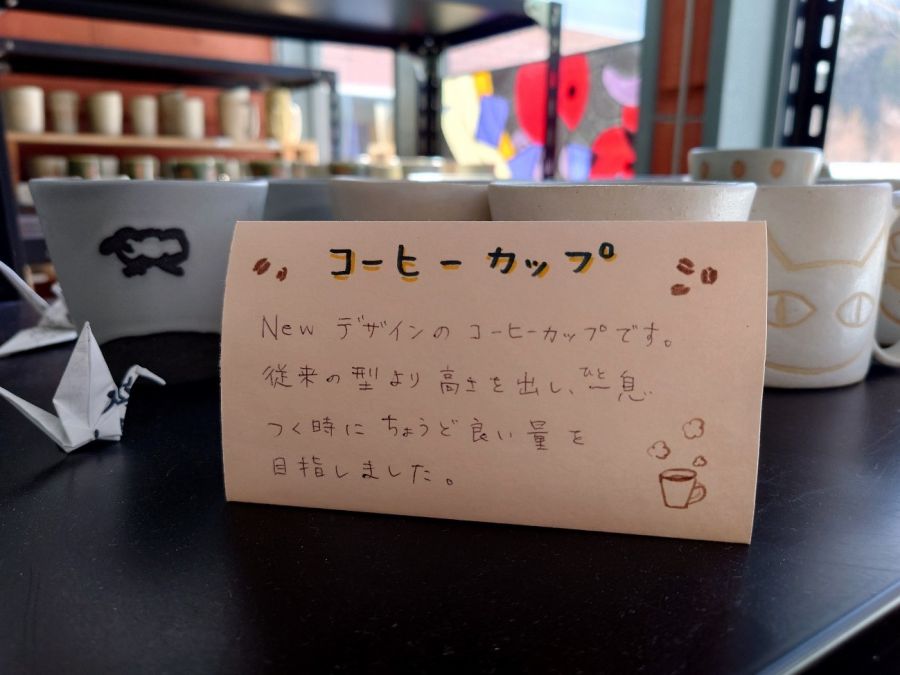 コーヒーカップ
New デザインの コーヒーカップです。
従来の型より高さを出し、ひと息
つく時にちょうど良い量を
目指しました。